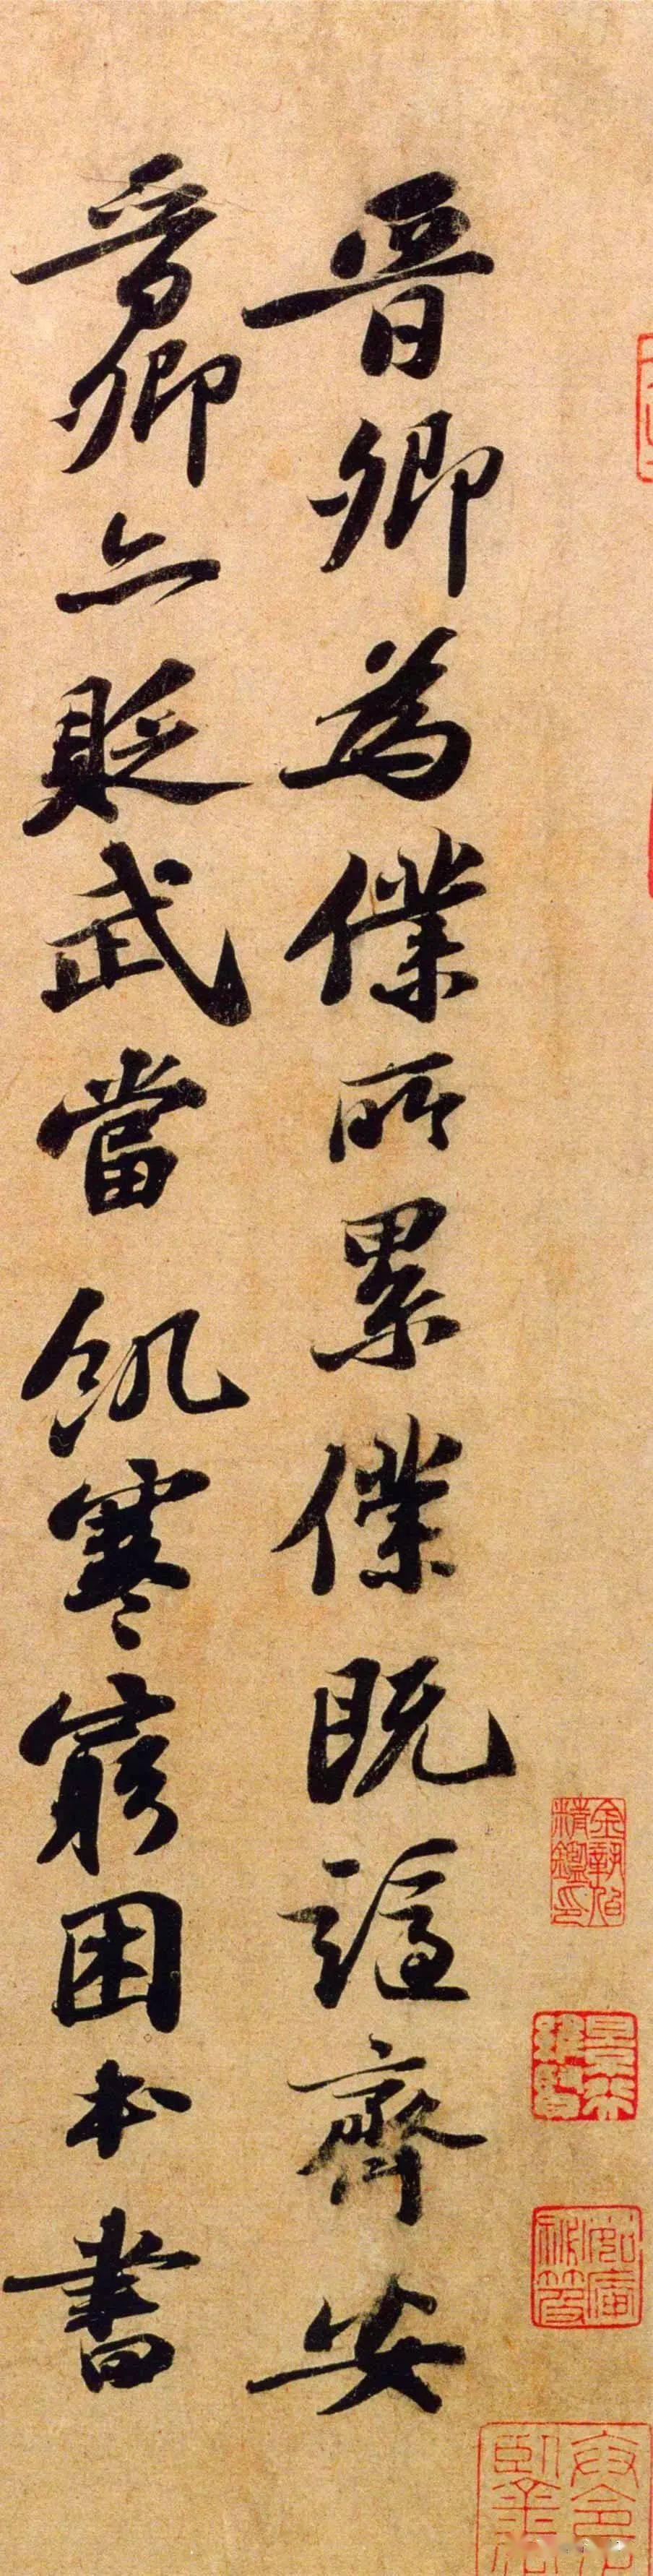 晋卿為僕所累僕既謫齊安
晋卿亦貶武當飢寒窮困本書